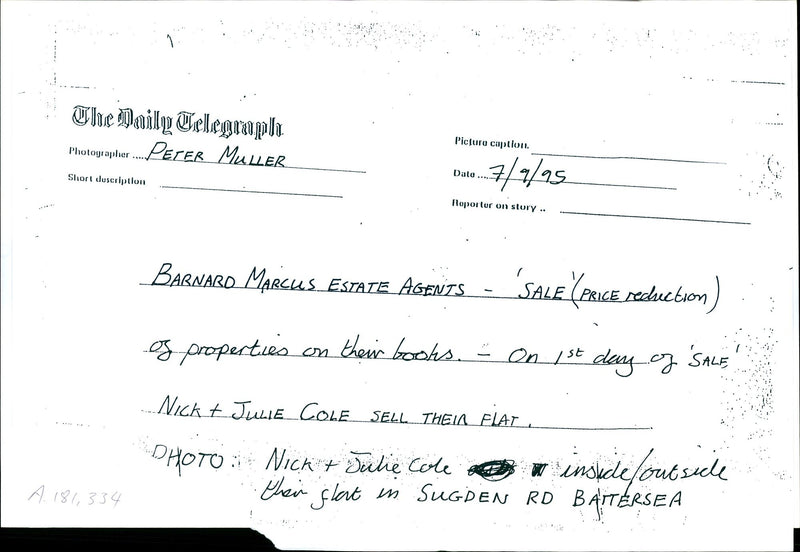 The Daily Telegraph
Photographer .... PETER MULLER
Short description
Picture caption.
Date .... 7/9/95
Reporter on story ..
BARNARD MARCUS ESTATE AGENTS - 'SALE' (PRICE reduction)
of properties on their books. - On 1st day of 'SALE'
NICK + JULIE COLE SELL THEIR FLAT.
PHOTO: Nick + Julie Cole inside/outside
their flat in SUGDEN RD BATTERSEA
A 181,334